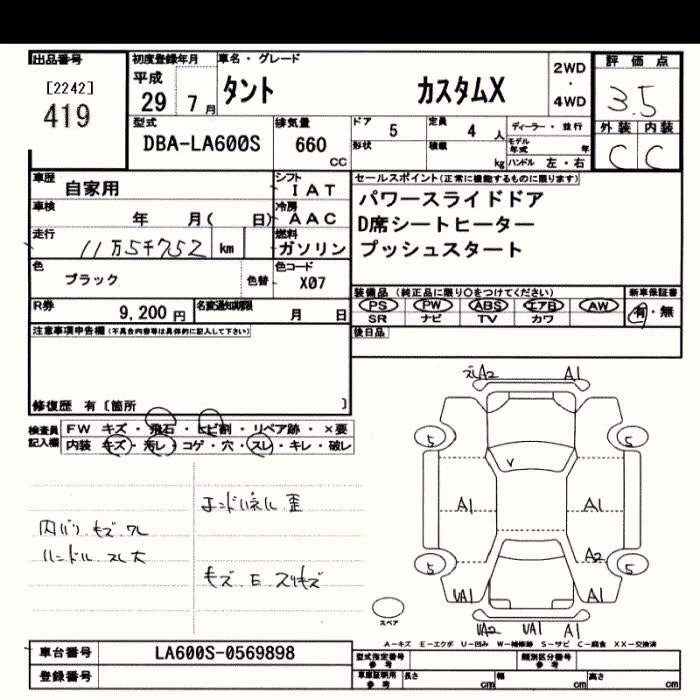 出品番号
[2242]
419
初度登録年月
平成
29 7月
車名・グレード
タント カスタムX
2WD
・
4WD
評価点
3.5
外装 内装
C C
型式
DBA-LA600S
排気量
660
CC
ドア 5
定員 4人
形状
積載 kg
ディーラー・並行
モデル年式 年
ハンドル 左・右
車歴 自家用
シフト IAT
車検 年 月( 日)
冷房 AAC
走行 11万5千752 km
燃料 ガソリン
色 ブラック 色替
色コード X07
R券 9,200円
名変通知期限 月 日
セールスポイント(正常に機能するものに限ります)
パワースライドドア
D席シートヒーター
プッシュスタート
装備品(純正品に限り○をつけてください)
新車保証書
PS PW ABS エアB AW
SR ナビ TV カワ
有・無
後日品
注意事項申告欄(不具合内容等は具体的に記入して下さい)
修復歴 有〔箇所 〕
検査員記入欄
FW キズ・飛石・ヒビ割・リペア跡・×要
内装 キズ・汚レ・コゲ・穴・スレ・キレ・破レ
エンドパネル 歪
ハンドル スレ大
キズ E スリキズ
A2 A1
5 5
A1 A1
A2
5 5
UA1 A1
UA2 UA1 A1
スペア
A-キズ E-エクボ U-凹み W-補修跡 S-サビ C-腐食 XX-交換済
車台番号 LA600S-0569898
登録番号
型式指定番号 参考
類別区分番号 参考
車庫証明用 参考
長さ cm
幅 cm
高さ cm